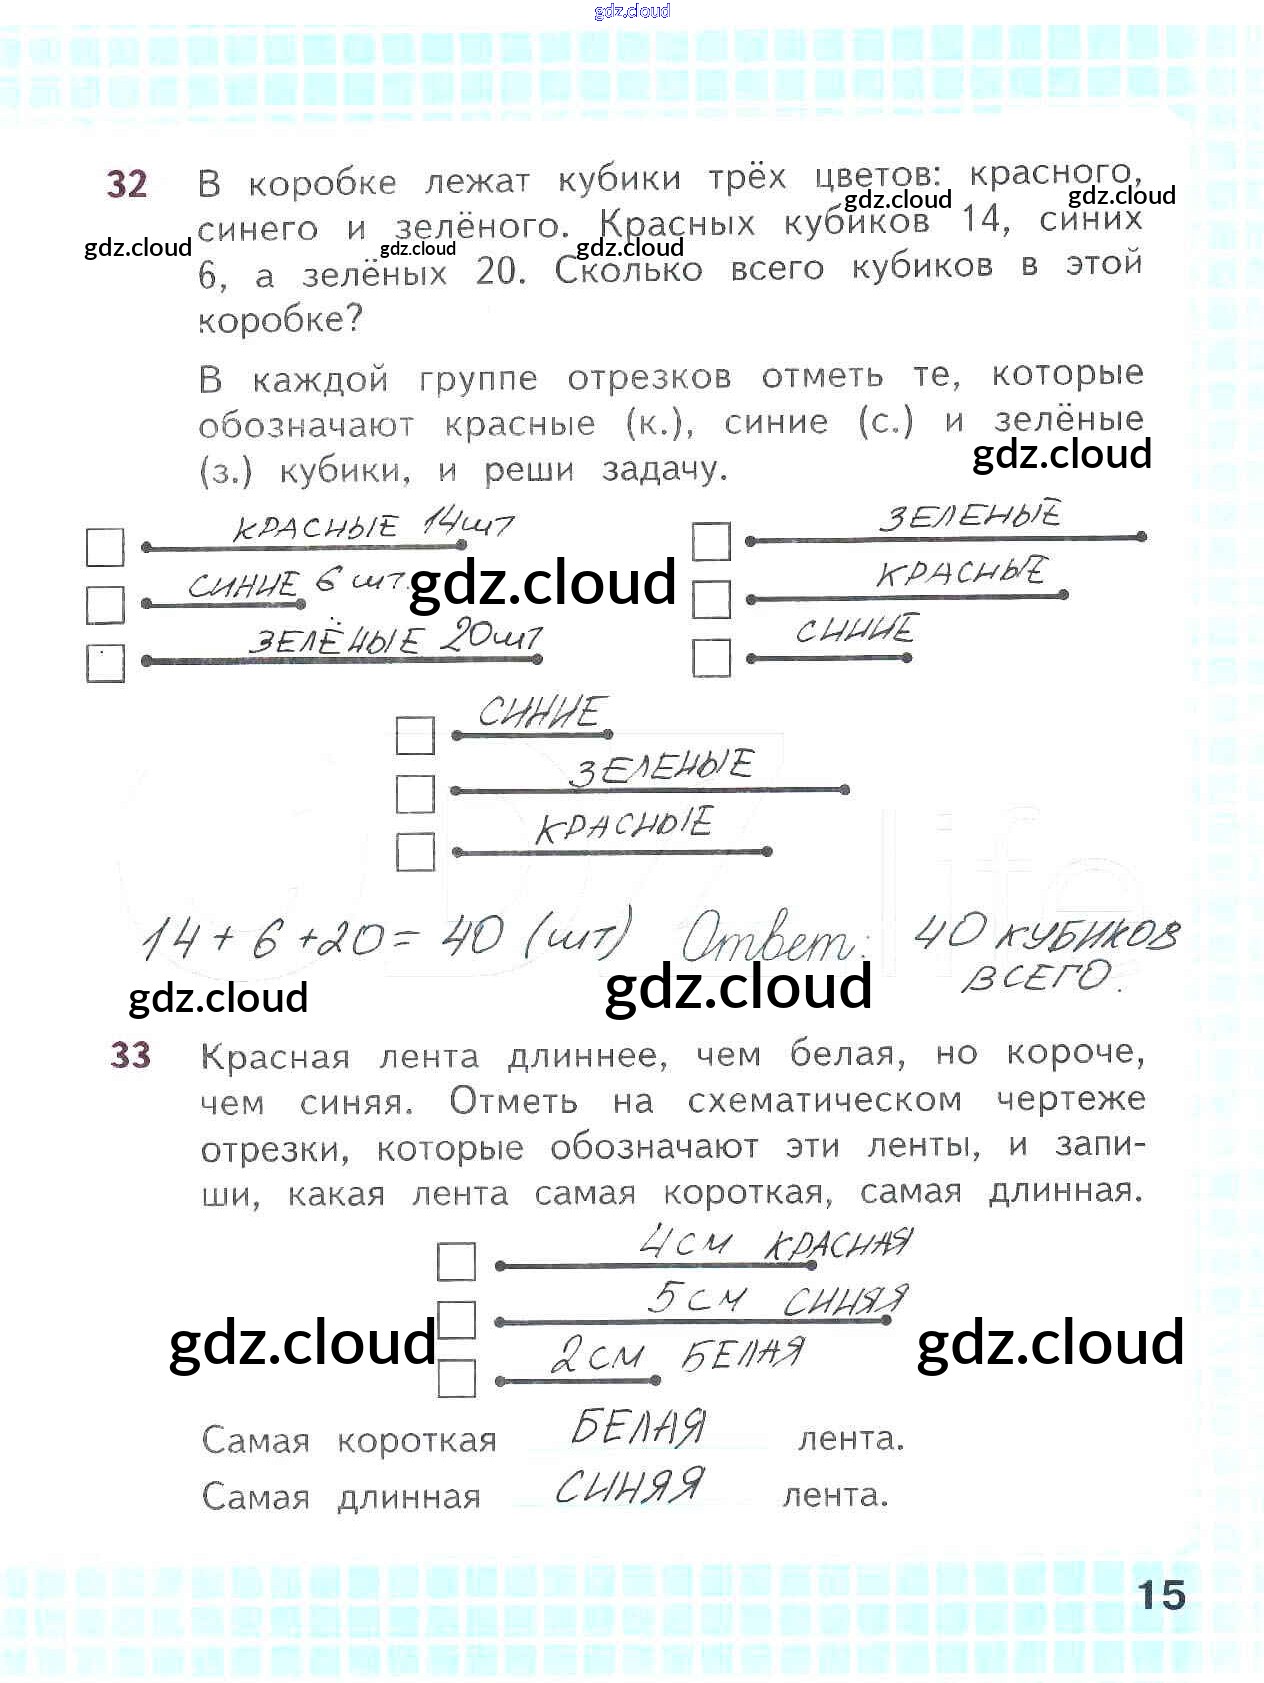 gdz.cloud
32 В коробке лежат кубики трёх цветов: красного,
gdz.cloud gdz.cloud
синего и зелёного. Красных кубиков 14, синих
gdz.cloud gdz.cloud gdz.cloud
6, а зелёных 20. Сколько всего кубиков в этой
коробке?
В каждой группе отрезков отметь те, которые
обозначают красные (к.), синие (с.) и зелёные
gdz.cloud
(з.) кубики, и реши задачу.
КРАСНЫЕ 14шт
СИНИЕ 6 шт.
ЗЕЛЁНЫЕ 20шт
ЗЕЛЕНЫЕ
КРАСНЫЕ
СИНИЕ
gdz.cloud
СИНИЕ
ЗЕЛЕНЫЕ
КРАСНЫЕ
GDZ life
14 + 6 + 20 = 40 (шт) Ответ: 40 КУБИКОВ
ВСЕГО.
gdz.cloud gdz.cloud
33 Красная лента длиннее, чем белая, но короче,
чем синяя. Отметь на схематическом чертеже
отрезки, которые обозначают эти ленты, и запи-
ши, какая лента самая короткая, самая длинная.
4см КРАСНАЯ
5см СИНЯЯ
gdz.cloud gdz.cloud
2см БЕЛАЯ
Самая короткая БЕЛАЯ лента.
Самая длинная СИНЯЯ лента.
15